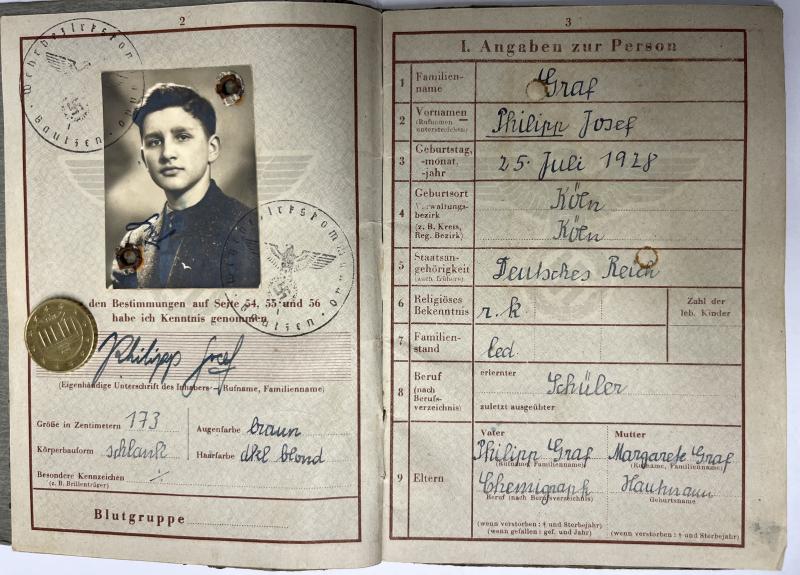 2
Wehrbezirkskommando
Bautzen
Wehrbezirkskommando
Bautzen
den Bestimmungen auf Seite 54, 55 und 56
habe ich Kenntnis genommen
Philipp Graf
(Eigenhändige Unterschrift des Inhabers – Rufname, Familienname)
Größe in Zentimetern 173
Augenfarbe braun
Körperbauform schlank
Haarfarbe dkl blond
Besondere Kennzeichen ⁒
(z. B. Brillenträger)
Blutgruppe
3
I. Angaben zur Person
1 Familien-
name
Graf
2 Vornamen
(Rufnamen
unterstreichen)
Philipp Josef
3 Geburtstag,
-monat,
-jahr
25. Juli 1928
4 Geburtsort
Verwaltungs-
bezirk
(z. B. Kreis,
Reg. Bezirk)
Köln
Köln
5 Staatsan-
gehörigkeit
(auch frühere)
Deutsches Reich
6 Religiöses
Bekenntnis
r.k.
Zahl der
leb. Kinder
7 Familien-
stand
led.
8 Beruf
(nach
Berufs-
verzeichnis)
erlernter
Schüler
zuletzt ausgeübter
9 Eltern
Vater
Philipp Graf
(Rufname, Familienname)
Chemigraph
Beruf (nach Berufsverzeichnis)
(wenn verstorben: † und Sterbejahr)
(wenn gefallen: gef. und Jahr)
Mutter
Margarete Graf
(Rufname, Familienname)
Hauhmann
Geburtsname
(wenn verstorben: † und Sterbejahr)